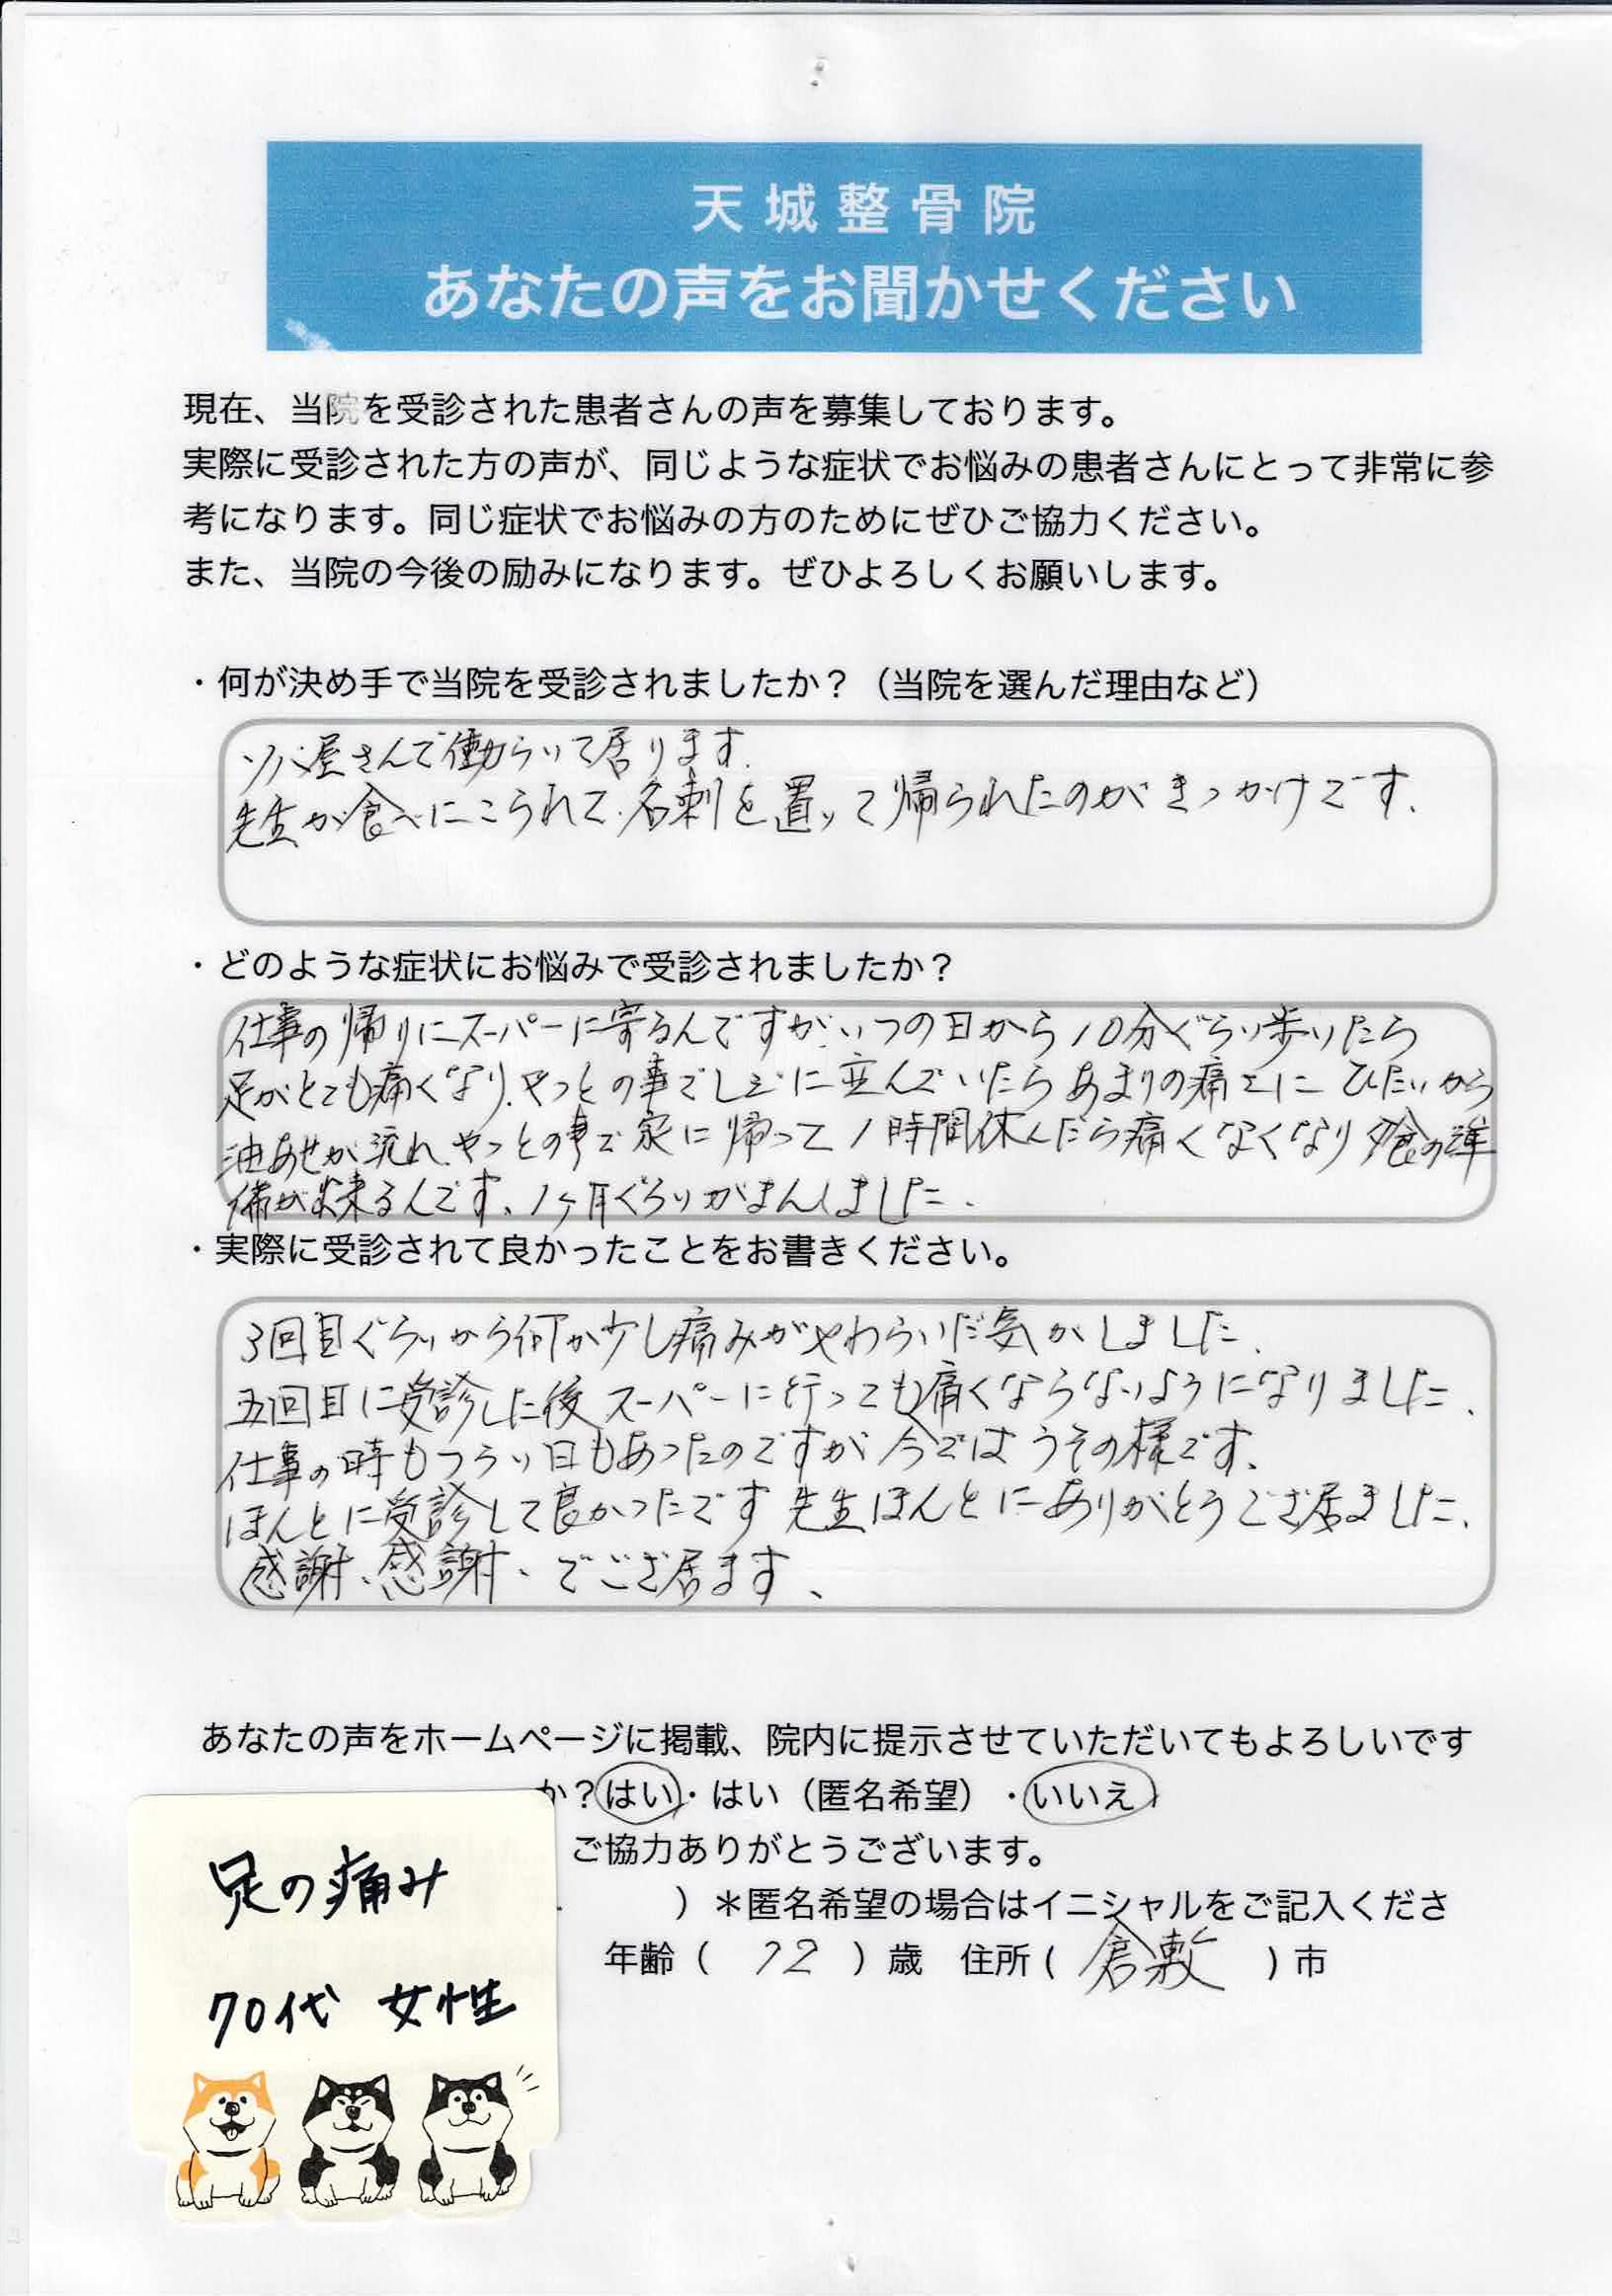 天城整骨院
あなたの声をお聞かせください
現在、当院を受診された患者さんの声を募集しております。
実際に受診された方の声が、同じような症状でお悩みの患者さんにとって非常に参
考になります。同じ症状でお悩みの方のためにぜひご協力ください。
また、当院の今後の励みになります。ぜひよろしくお願いします。
・何が決め手で当院を受診されましたか？（当院を選んだ理由など）
ソバ屋さんで働らいて居ります.
先生が食べにこられて、名刺を置いて帰られたのがきっかけです.
・どのような症状にお悩みで受診されましたか？
仕事の帰りにスーパーに寄るんですが、いつの日から10分ぐらい歩いたら
足がとても痛くなり、やっとの事でレジに並んでいたらあまりの痛さにひたいから
油あせが流れ、やっとの事で家に帰って1時間休んだら痛くなくなり夕食の準
備が出来るんです、1ヶ月ぐらいがまんしました.
・実際に受診されて良かったことをお書きください。
3回目ぐらいから何か少し痛みがやわらいだ気がしました.
五回目に受診した後スーパーに行っても痛くならないようになりました.
仕事の時もつらい日もあったのですが今ではうその様です、
ほんとに受診して良かったです 先生ほんとにありがとうござ居ました、
感謝、感謝、でござ居ます、
あなたの声をホームページに掲載、院内に提示させていただいてもよろしいです
か？はい・はい（匿名希望）・いいえ
ご協力ありがとうございます。
）＊匿名希望の場合はイニシャルをご記入くださ
年齢（ 72 ）歳 住所( 倉敷 )市
足の痛み
70代 女性